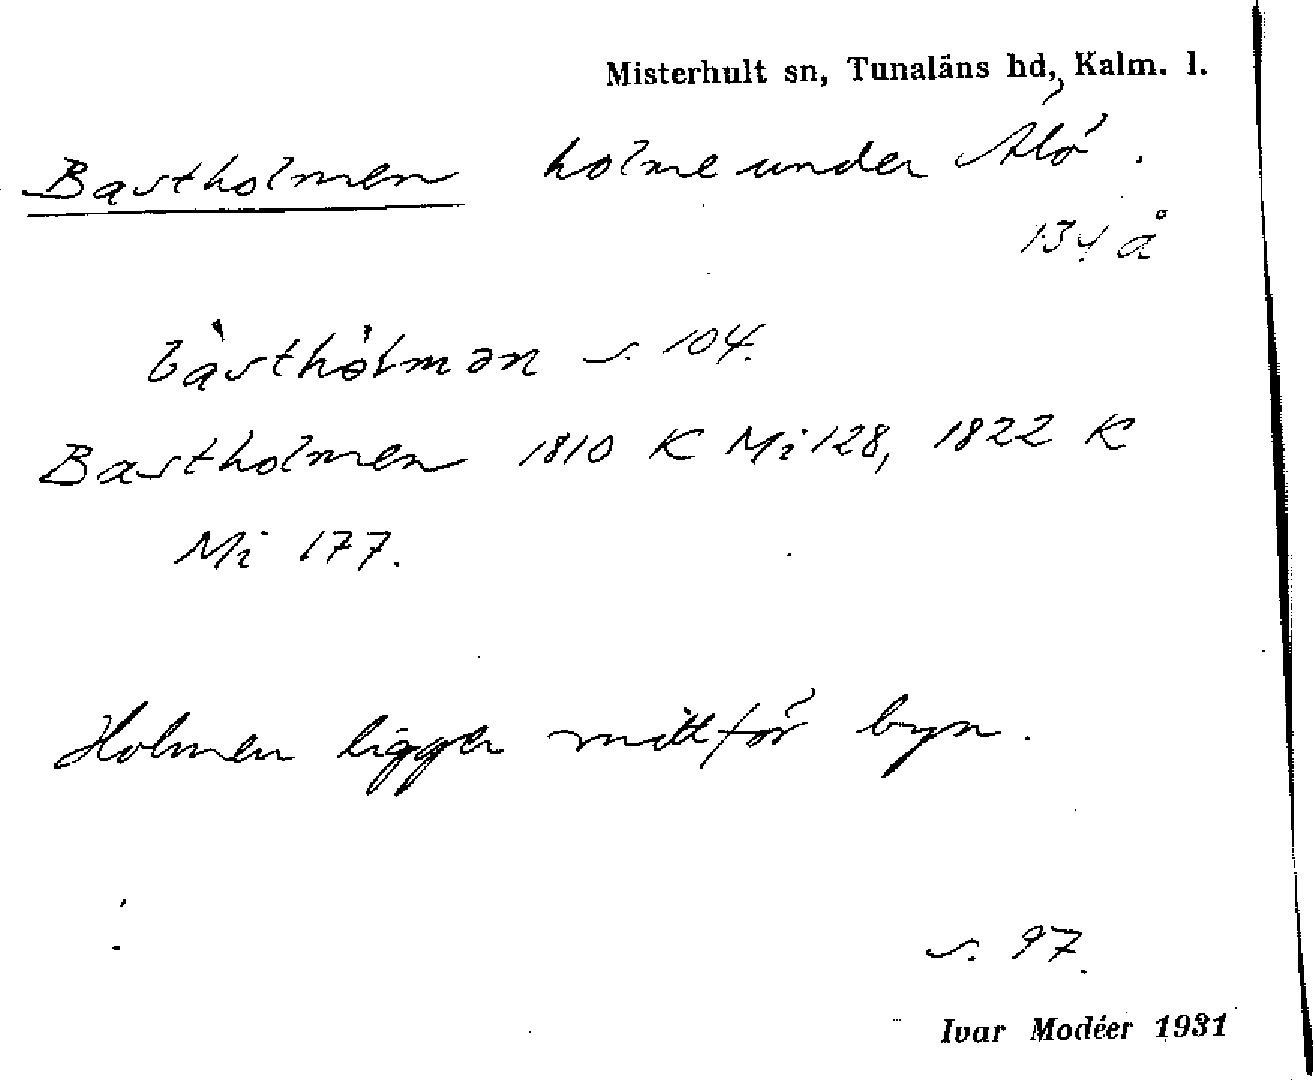 Misterhult sn, Tunaläns hd, Kalm. l.
Bastholmen holme under Älö.
134 å
bàsthòlmən s. 104.
Bastholmen 1810 K Mi 128, 1822 K
Mi 177.
Holmen ligger mitt för byn.
s. 97.
Ivar Modéer 1931